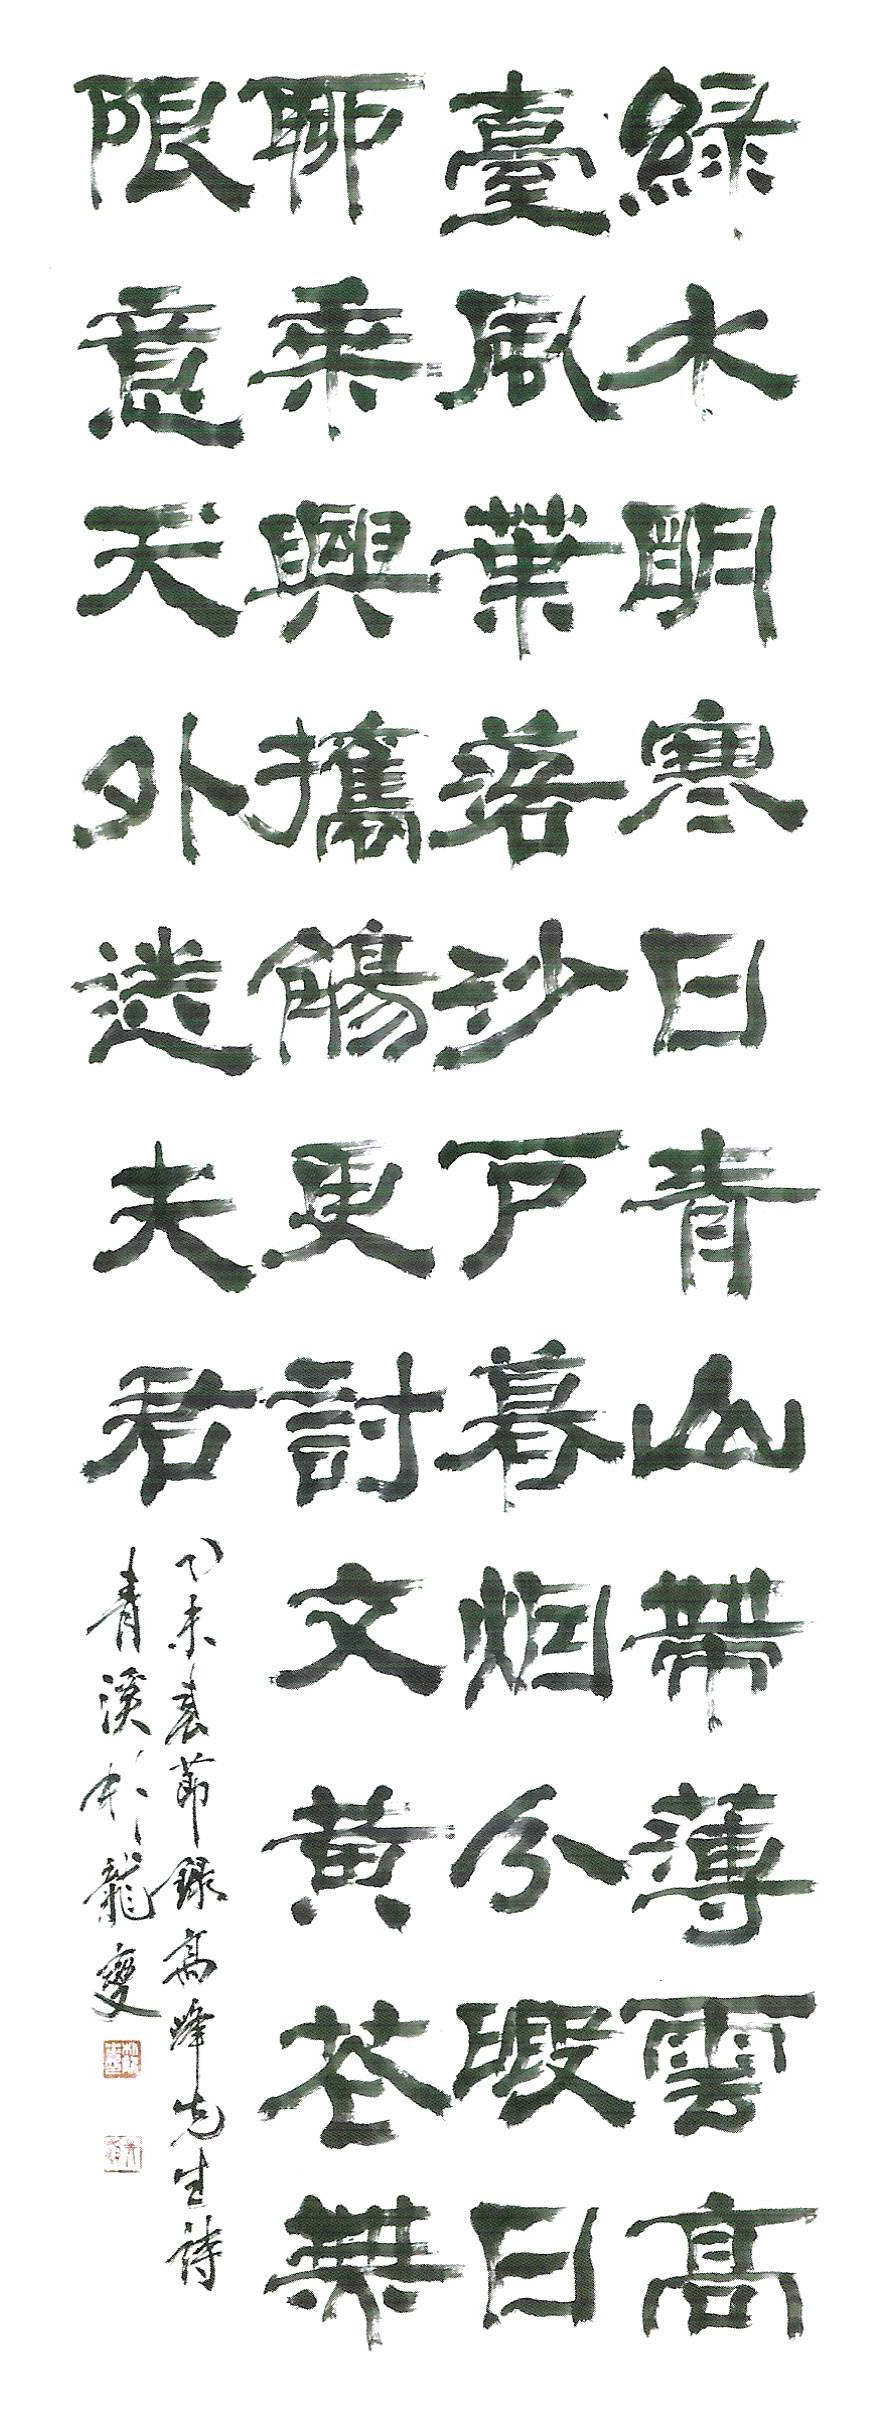 綠水明寒日青山帶薄雲高
臺風葉落沙戶暮烟分暇日
聊乘興攜觴更討文黃花無
限意天外送夫君
乙未春節錄高峰先生詩
青溪 龍雙